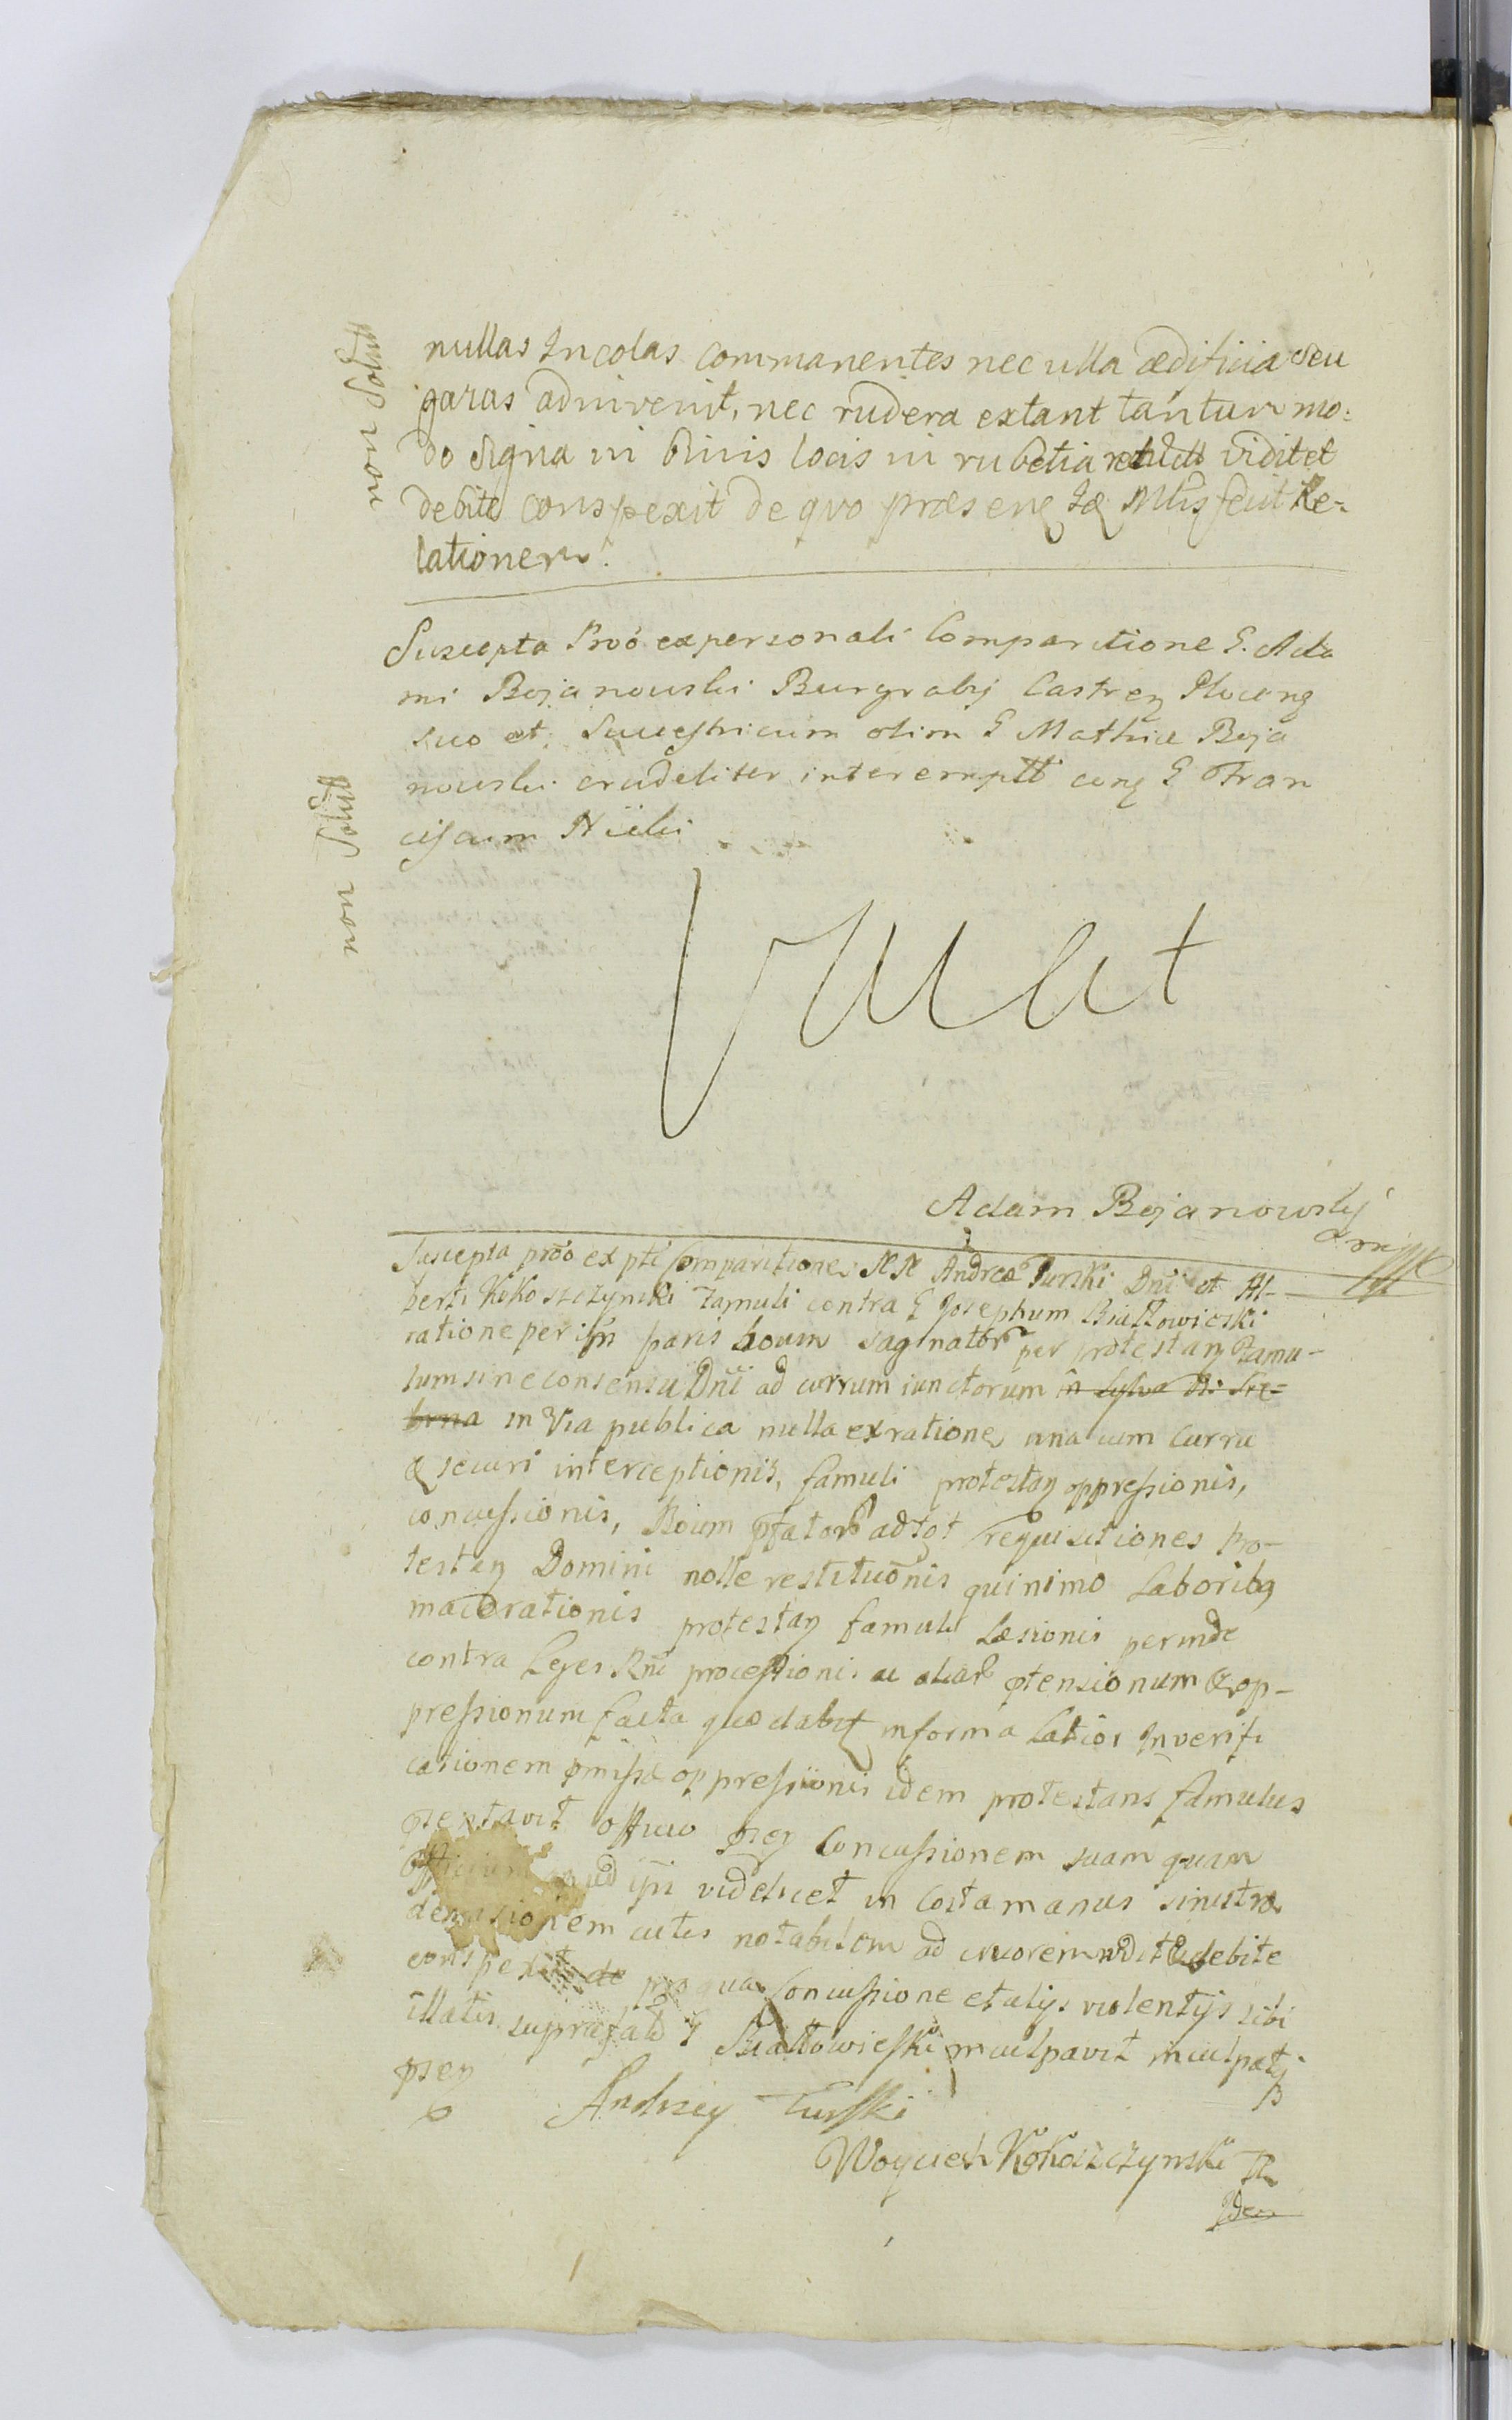 nullas Incolas commanentes nec ulla ædificia seu
garas adnivenit, nec rudera extant tantum mo:
do signa in binis locis in rubetia viditet
debite conspexit de quo præsens Mtris fecit Re-
lationem.
non solvit
Suscepta Proo ex personali Comparitione G. Ada
mi Bojanowski Burgrabij Castren Plocens
suo et Successricum olim G Mathiæ Boja
nowski crudeliter interempti cong G Fran
ciscum Nicki
non solvit
Vacat
Adam Bojanowskj
mpp
Suscepta proo ex pti Comparitione NN Andreæ Turski Dni et Al-
berti Kokoszczynski famuli contra G Josephum Białłowieski
ratione per ipm paris boum saginator per protestan famu-
lum sine consensu Dni ad currum iunctorum in Sylva
in Via publica nulla ex ratione una cum curru
& securi interceptionis, famuli protestan oppressionis,
concussionis, Boum pfator ad tot requisitiones Pro-
testan Domini nolle restituonis quinimo Laboribq
macerationis protestan famuli Læsionis perinde
contra Leges Rni processionis ac aliar ptensionum & op-
pressionum facta quæ dabit in forma Latior In verifi
cationem pmissæ oppressionis idem protestans famulus
psentavit officio psen Concussionem suam quam
Officium apud ipm videlicet in Costa manus sinistræ
demasionem cutis notabilem ad cruorem vidit & debite
conspexit de pro qua Concussione et alijs violentijs sibi
illatis supra fatu G Białłowieski inculpavit inculpatq
psen
Andrzey Turski
Woyciech Kokoszczynski
Idem